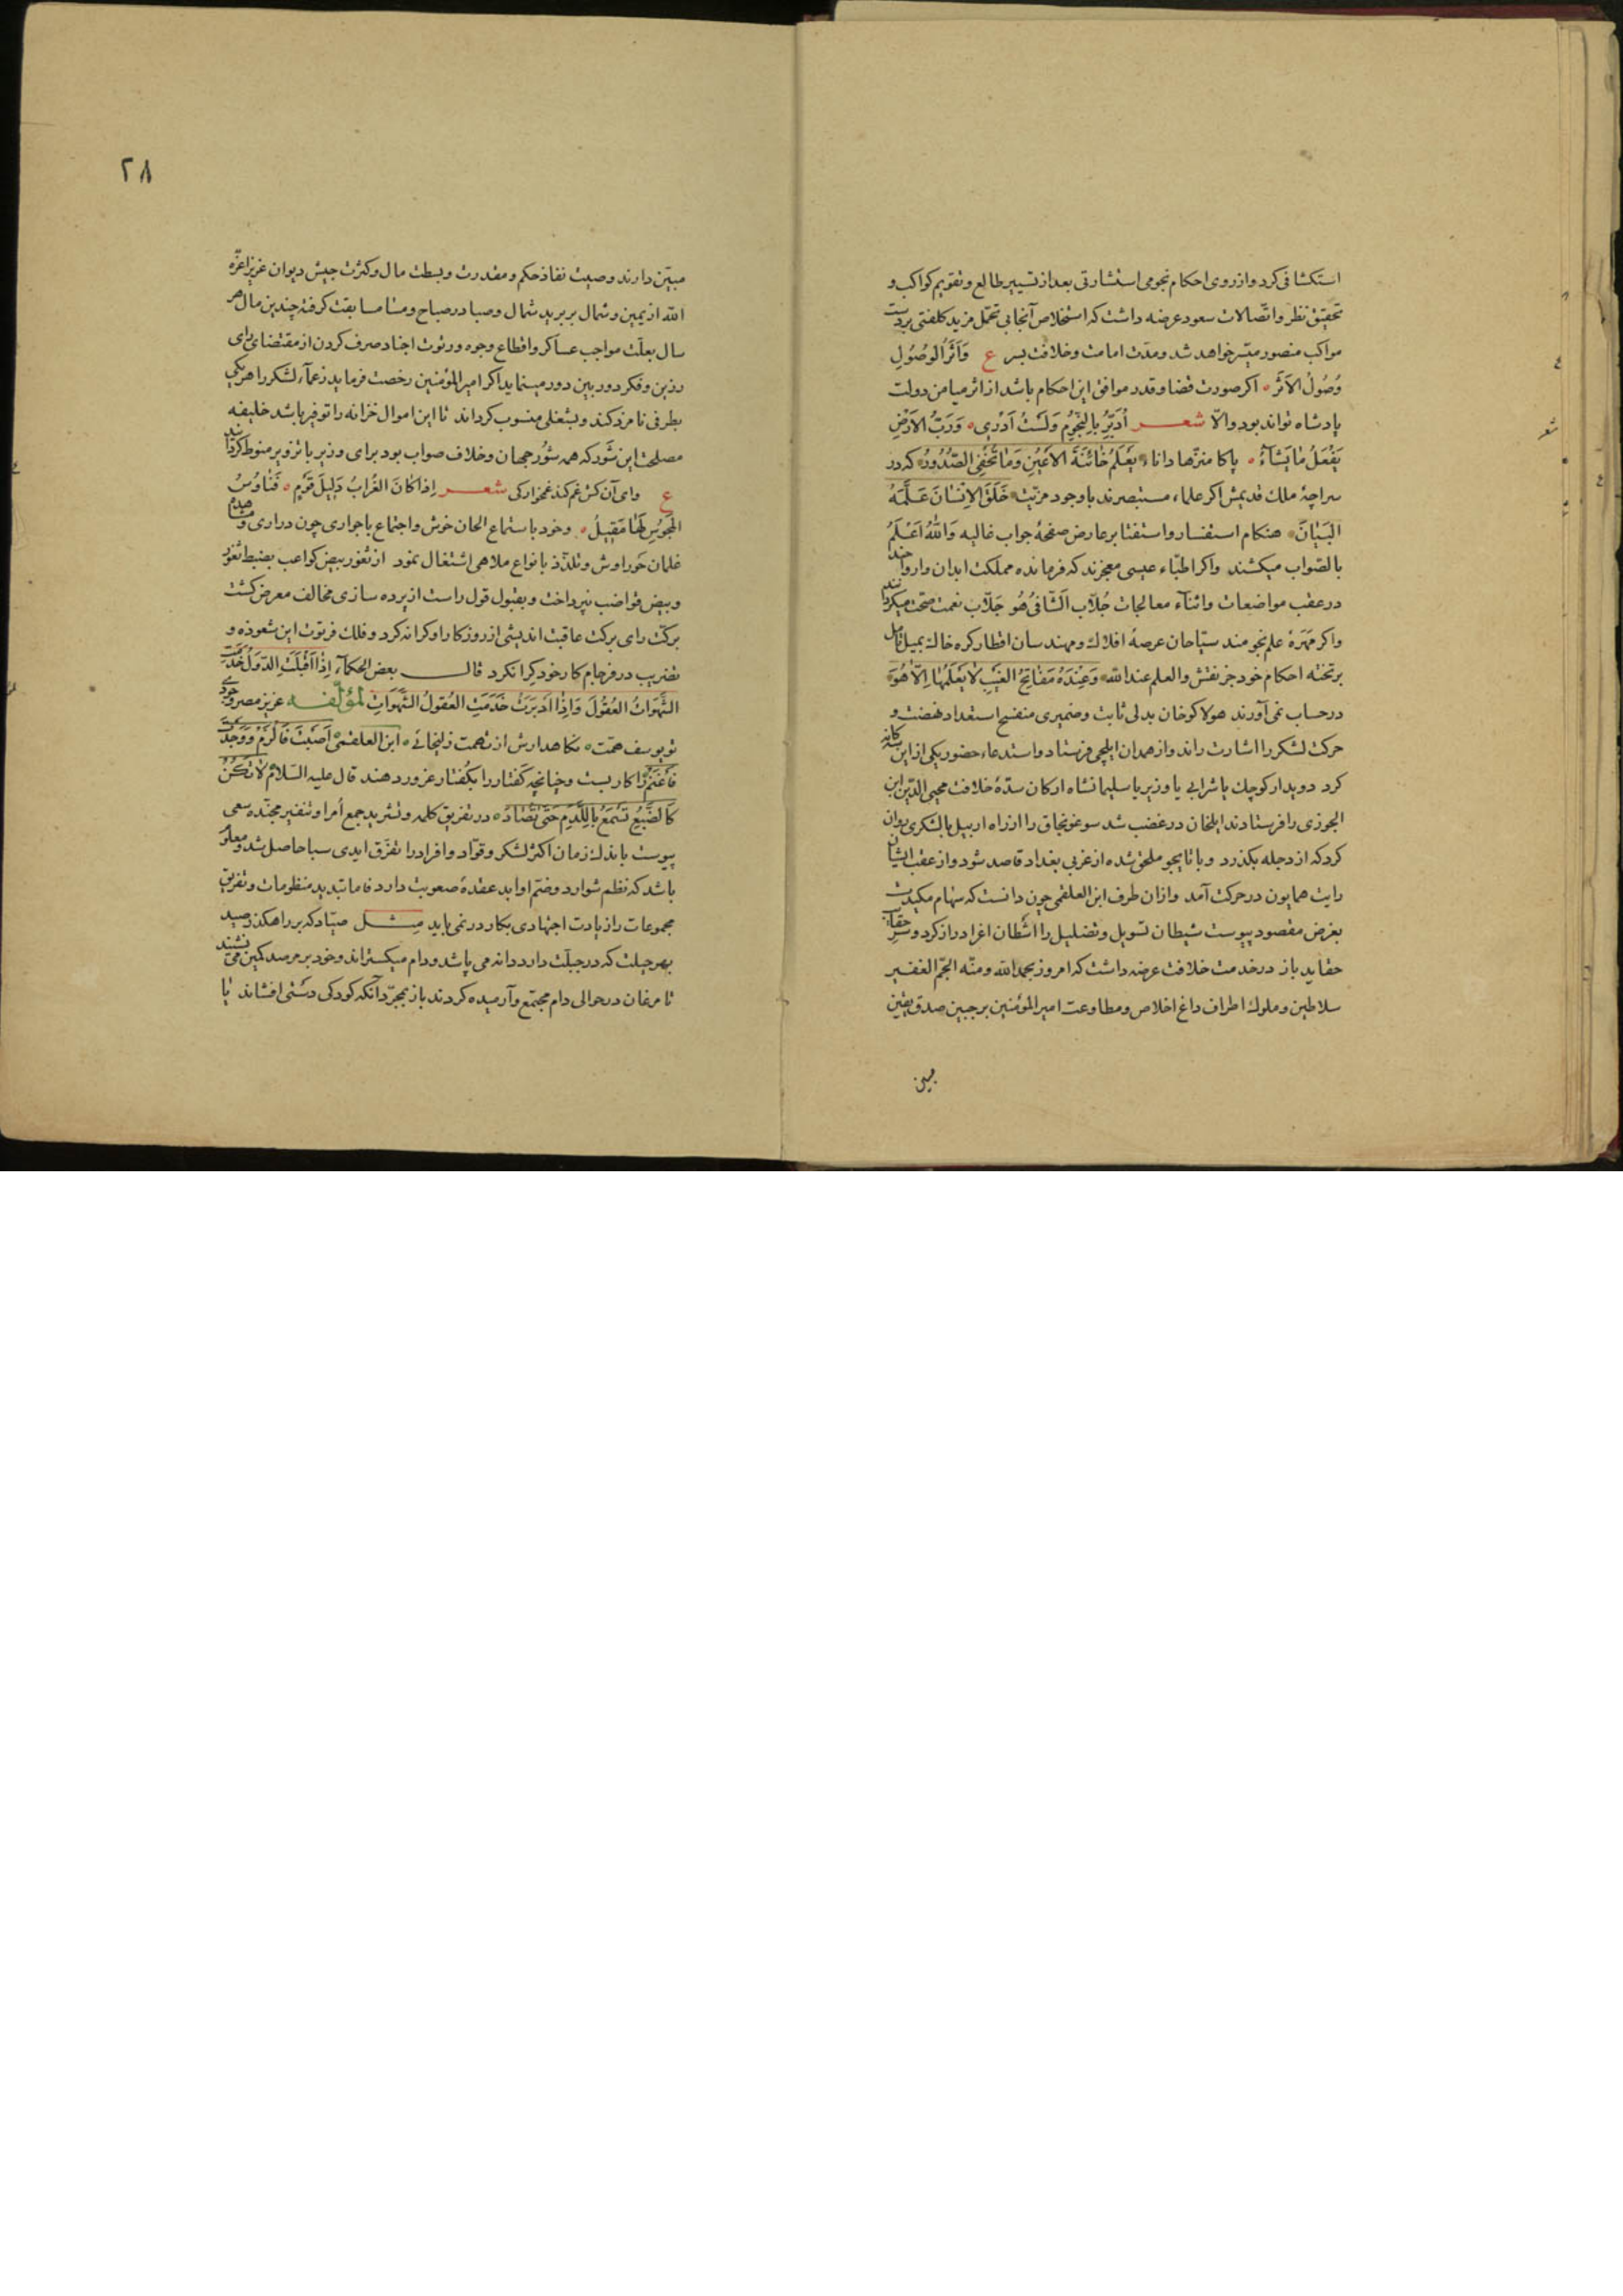 استکشافی کرد و از روی احکام نجومی استشارتی بعد از تسییر طالع و تقویم کواکب و
تحقیق نظر و اتّصالات سعود عرضه داشت که استخلاص آنجا بی تحمّل مزید کلفتی بر دست
مواکب منصور میسّر خواهد شد و مدّت امامت و خلافت بسر ع وَاَثَرُ الوُصُولِ
وُصُولُ الاَثَرْ اکر صورت قضا و قدر موافق این احکام باشد از اثر میامن دولت
پادشاه تواند بود والّا شعر اُدَبِّرُ بِالنُّجُومِ وَلَسْتُ اَدْرِی وَرَبُّ الاَرْضِ
یَفْعَلُ مٰا یَشٰآءُ پاکا منزّها داناء یَعْلَمُ خٰائِنَةَ الاَعْیُنِ وَمٰا تُخْفِی الصُّدُورُ که در
سراچۀ ملک قدیمش اکر علماء مستبصرند با وجود مزیّت خَلَقَ الاِنْسٰانَ عَلَّمَهُ
البَیٰانَ هنکام استفسار و استفتا بر عارض صفحۀ جواب غالیه وَاللّٰهُ اَعْلَمُ
بالصّواب میکشند واکر اطبّاء عیسی معجزند که فرمانده مملکت ابدان و ارواحند
در عقب مواضعات و اثنآء معالجات جُلّابِ اَلشّافیُ هُو جَلّاب نعمت صحّت میکردانند
واکر مَهَرۀ علم نجومند سیّاحان عرصۀ افلاک و مهندسان اقطار کره خاک بمیل تامل
بر تخته احکام خود جز نقش والعلم عند اللّه وَعِنْدَهُ مَفٰاتِحُ الغَیْبِ لٰا یَعْلَمُهٰا اِلّٰا هُوَ
در حساب نمی آورند هولاکو خان بدلی ثابت و ضمیری منفسح استعداد نهضت و
حرکت لشکر را اشارت راند و از همدان ایلچی فرستاد و استدعاء حضور یکی ازین سه کانه
کرد دویدار کوچک یا شرابی یا وزیر یا سلیمانشاه ارکان سدّۀ خلافت محیی الدّین ابن
الجوزی را فرستادند ایلخان در غضب شد سوغونجاق را از راه اربیل با لشکری روان
کرد که از دجله بکذرد و با تایجو ملحق شده از غربی بغداد قاصد شود و از عقب ایشان
رایت همایون در حرکت آمد و ازان طرف ابن العلقمی چون دانست که سهام مکیدت
بغرض مقصود پیوست شیطان تسویل و تضلیل را اَشْطان اغرا دراز کرد و سَرِ حقایبِ
حقاید باز در خدمت خلافت عرضه داشت که امروز بحمد اللّه و منّه الجمّ الغفیر
سلاطین و ملوک اطراف داغ اخلاص و مطاوعت امیر المؤمنین بر جبین صدق یقین
مبین
٢٨
مبیّن دارند و صیت نفاذ حکم و مقدرت و بسطت مال و کثرت جیش دیوان عزیز اعزّه
اللّه از یمین و شمال بر برید شمال و صبا در صباح و مسا مسابقت کرفته چندین مال هر
سال بعلّت مواجب عساکر و اقطاع وجوه و رتوت اجناد صرف کردن از مقتضای رای
رزین و فکر دوربین دور مینماید اکر امیر المؤمنین رخصت فرماید زعمآء لشکر را هر یکی
بطرفی نامزد کند و بشغلی منسوب کرداند تا این اموال خزانه را توفیر باشد خلیفه
مصلحت این شَور که همه شُور جهان و خلاف صواب بود برای وزیر با تزویر منوط کردانید
ع وای آن کش غم کند غمخوارکی شعر اِذا کٰانَ الغُرابُ دَلِیلَ قَوْمٍ فَنٰاوُسُ
المَجُوسِ لَهٰا مَقِیلُ و خود باستماع الحان خوش و اجتماع با جواری چون دراری و مشاهدۀ
غلمان حوراوش و تلذّذ بانواع ملاهی اشتغال نمود از ثغور بیض کواعب بضبط ثغور
و بیض قواضب نپرداخت و بقبول قول راست از پرده سازی مخالف معرض کشت
برکت رای برکت عاقبت اندیشی از روز کار او کرانه کرد و فلک فرتوت این شعوذه و
تضریب در فرجام کار خود کِرا نکرد قال بعض الحکمآء اِذٰا اَقْبَلَتِ الدّوَلُ خَدَمَتِ
الشَّهَوٰاتُ العُقُولَ وَاِذٰا اَدْبَرَتْ خَدَمَتِ العُقُولُ الشَّهَوٰاتِ لمؤلّفه عزیز مصر وجودی
تو یوسف همّت نکاه دارش از تهمت زلیخائی ابن العلقمی اَصَبْتَ فَالْزَمْ وَوَجَدْتَ
فَاغْتَنِمْ را کار بست و چنانچه کَفتار را بکُفتار غرور دهند قال علیه السّلام لٰا تَکُنْ
کَالضَّبُعِ تَسْمَعُ بِاللَّدْمِ حَتّٰی تُصٰادَ در تفریق کلمه و تشرید جمع اُمرا و تنفیر مجنّده سعی
پیوست باندک زمان اکثر لشکر و قوّاد و افراد را تفرّق ایدی سبا حاصل شد و معلوم
باشد که نظم شوارد و ضم اوابد عقدۀ صعوبت دارد فاما تبدید منظومات و تفریق
مجموعات را زیادت اجتهادی بکار در نمی باید مثل صیّاد که بر راهکذر صید
بهر حیلت که در جبلّت دارد دانه می پاشد و دام میکستراند و خود بر مرصد کمین می نشیند
تا مرغان در حوالی دام مجتمع و آرمیده کردند باز بمجرّد آنکه کودکی دستی افشاند یا